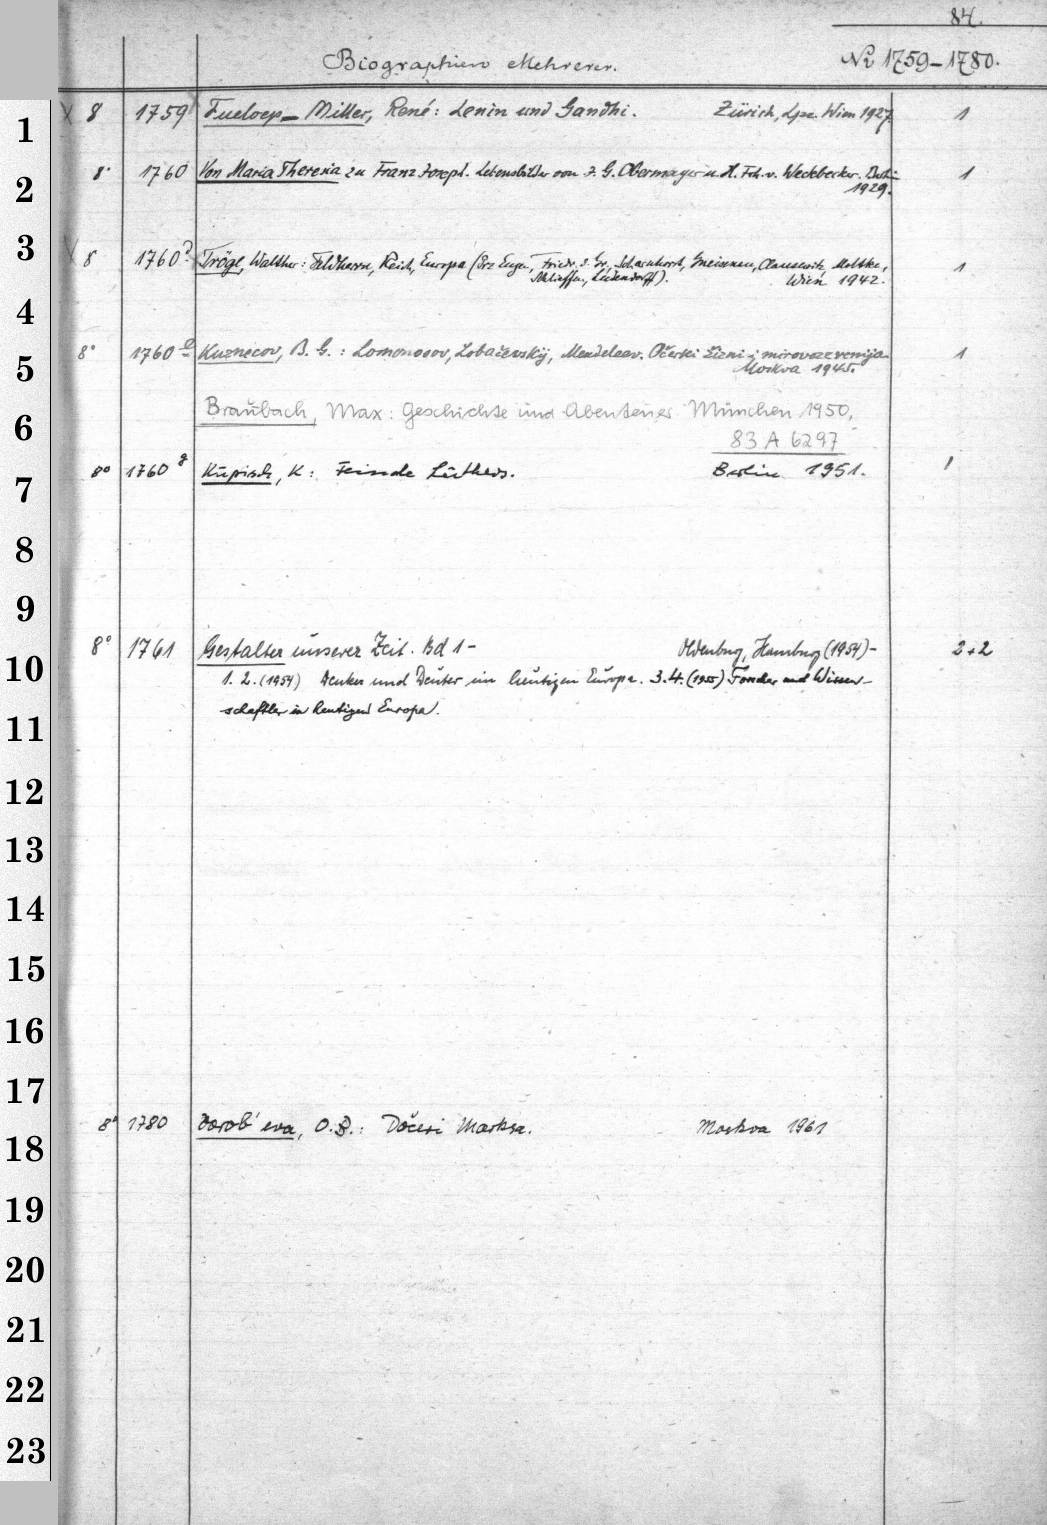 84.
Biographien Mehrerer. Nr 1759-1780.
1
X 8 1759 Fueloep-Miller, René: Lenin und Gandhi. Zürich, Lpz. Wien 1927. 1
2
8° 1760 Von Maria Theresia zu Franz Joseph. Lebensbilder von J. G. Obermayer u. H. Frh. v. Weckbecker. Berl.
1929. 1
3
X 8 1760 Trögl, Walther: Feldherrn, Reich, Europa (Prz Eugen, Friedr. d. Gr., Scharnhorst, Gneisenau, Clausewitz, Moltke, 1
Schlieffen, Ludendorff). Wien 1942.
4
8° 1760 e Kuznecov, B. G.: Lomonosov, Lobačevskij, Mendeleev. Očerki žizni i mirovozzrenija. 1
5
Moskva 1945.
Braubach, Max: Geschichte und Abenteuer München 1950,
6
83 A 6297
8° 1760 g Kupisch, K: Feinde Luthers. Berlin 1951. 1
7
8
9
8° 1761 Gestalter unserer Zeit. Bd 1- Oldenburg, Hamburg (1954)- 2+2
10
1. 2. (1954) Denker und Deuter im heutigen Europa. 3.4. (1955) Forscher und Wissen-
schaftler im heutigen Europa.
11
12
13
14
15
16
17
8° 1780 Vorob'eva, O. B.: Dočeri Marksa. Moskva 1961
18
19
20
21
22
23